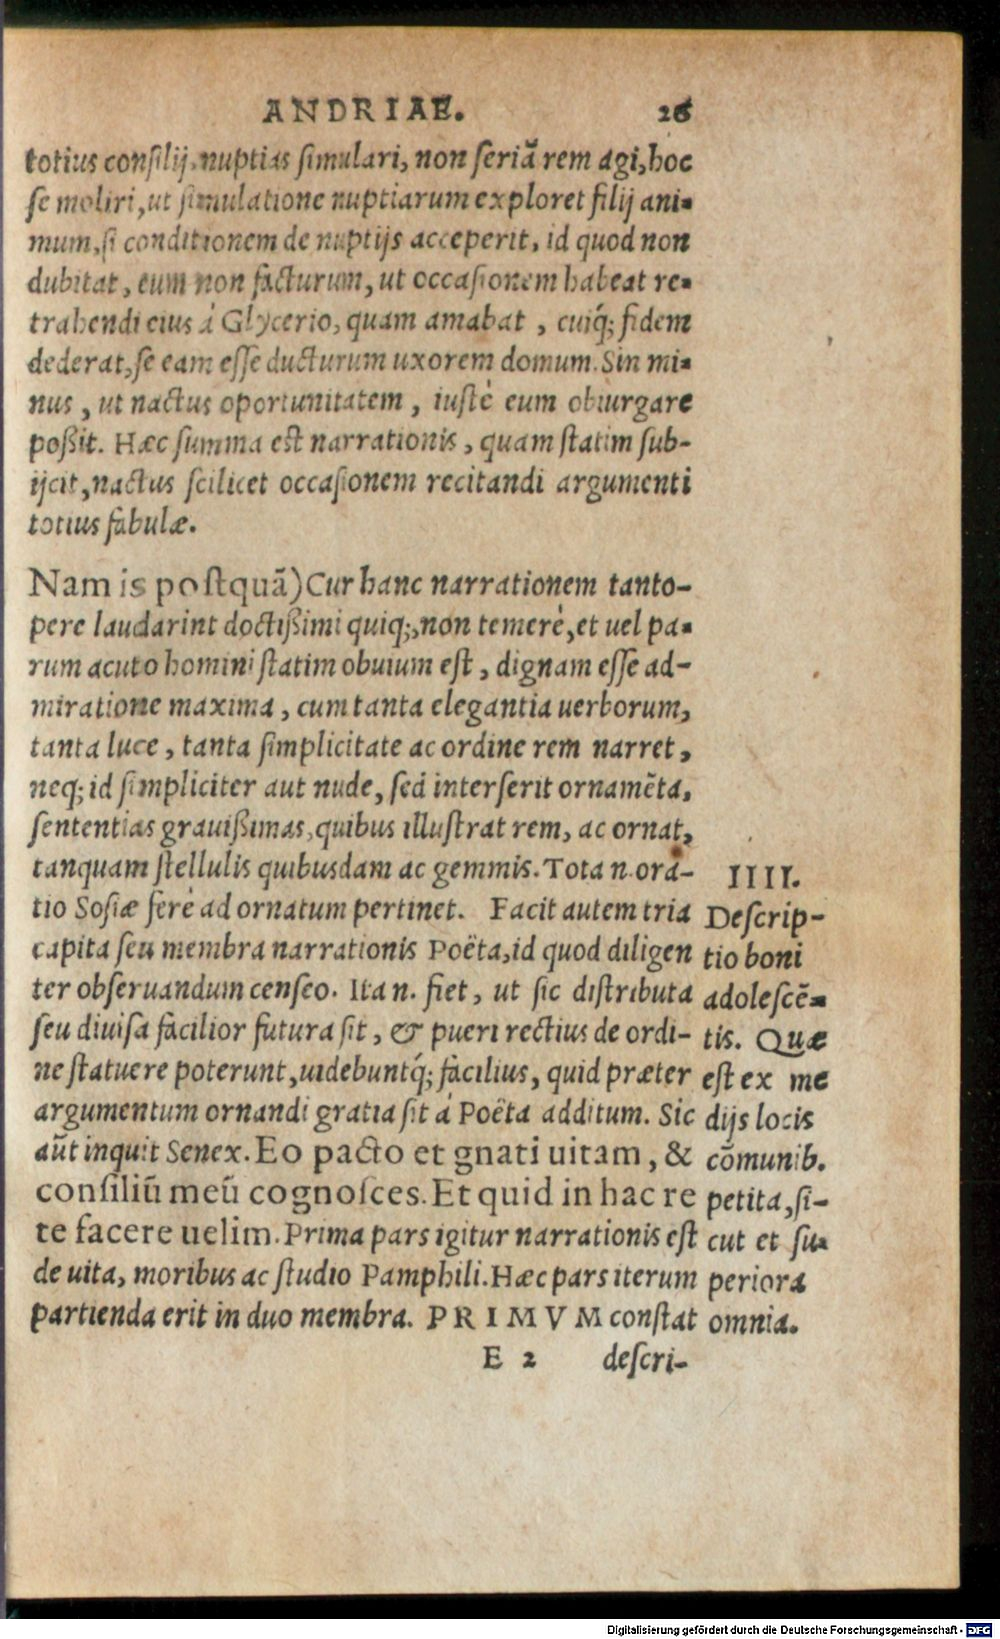 ANDRIAE. 26
totius consilij, nuptias simulari, non seriā rem agi, hoc
se moliri, ut simulatione nuptiarum exploret filij ani-
mum, si conditionem de nuptijs acceperit, id quod non
dubitat, eum non facturum, ut occasionem habeat re-
trahendi eius á Glycerio, quam amabat, cuiq́; fidem
dederat, se eam esse ducturum uxorem domum. Sin mi-
nus, ut nactus oportunitatem, iustè eum obiurgare
poßit. Hæc summa est narrationis, quam statim sub-
ijcit, nactus scilicet occasionem recitandi argumenti
totius fabulæ.
Nam is postquā) Cur hanc narrationem tanto-
pere laudarint doctißimi quiq;, non temerè, et uel pa-
rum acuto homini statim obuium est, dignam esse ad-
miratione maxima, cum tanta elegantia uerborum,
tanta luce, tanta simplicitate ac ordine rem narret,
neq; id simpliciter aut nude, sed interserit ornamēta,
sententias grauißimas, quibus illustrat rem, ac ornat,
tanquam stellulis quibusdam ac gemmis. Tota n. ora-
tio Sosiæ ferè ad ornatum pertinet. Facit autem tria
capita seu membra narrationis Poëta, id quod diligen
ter obseruandum censeo. Ita n. fiet, ut sic distributa
seu diuisa facilior futura sit, & pueri rectius de ordi-
ne statuere poterunt, uidebuntq́; facilius, quid præter
argumentum ornandi gratia sit á Poëta additum. Sic
aūt inquit Senex. Eo pacto et gnati uitam, &
consiliū meū cognosces. Et quid in hac re
te facere uelim. Prima pars igitur narrationis est
de uita, moribus ac studio Pamphili. Hæc pars iterum
partienda erit in duo membra. PRIMVM constat
E 2 descri-
IIII.
Descrip-
tio boni
adolescē-
tis. Quæ
est ex me
dijs locis
cōmunib.
petita, si-
cut et su-
periora
omnia.
Digitalisierung gefördert durch die Deutsche Forschungsgemeinschaft - DFG